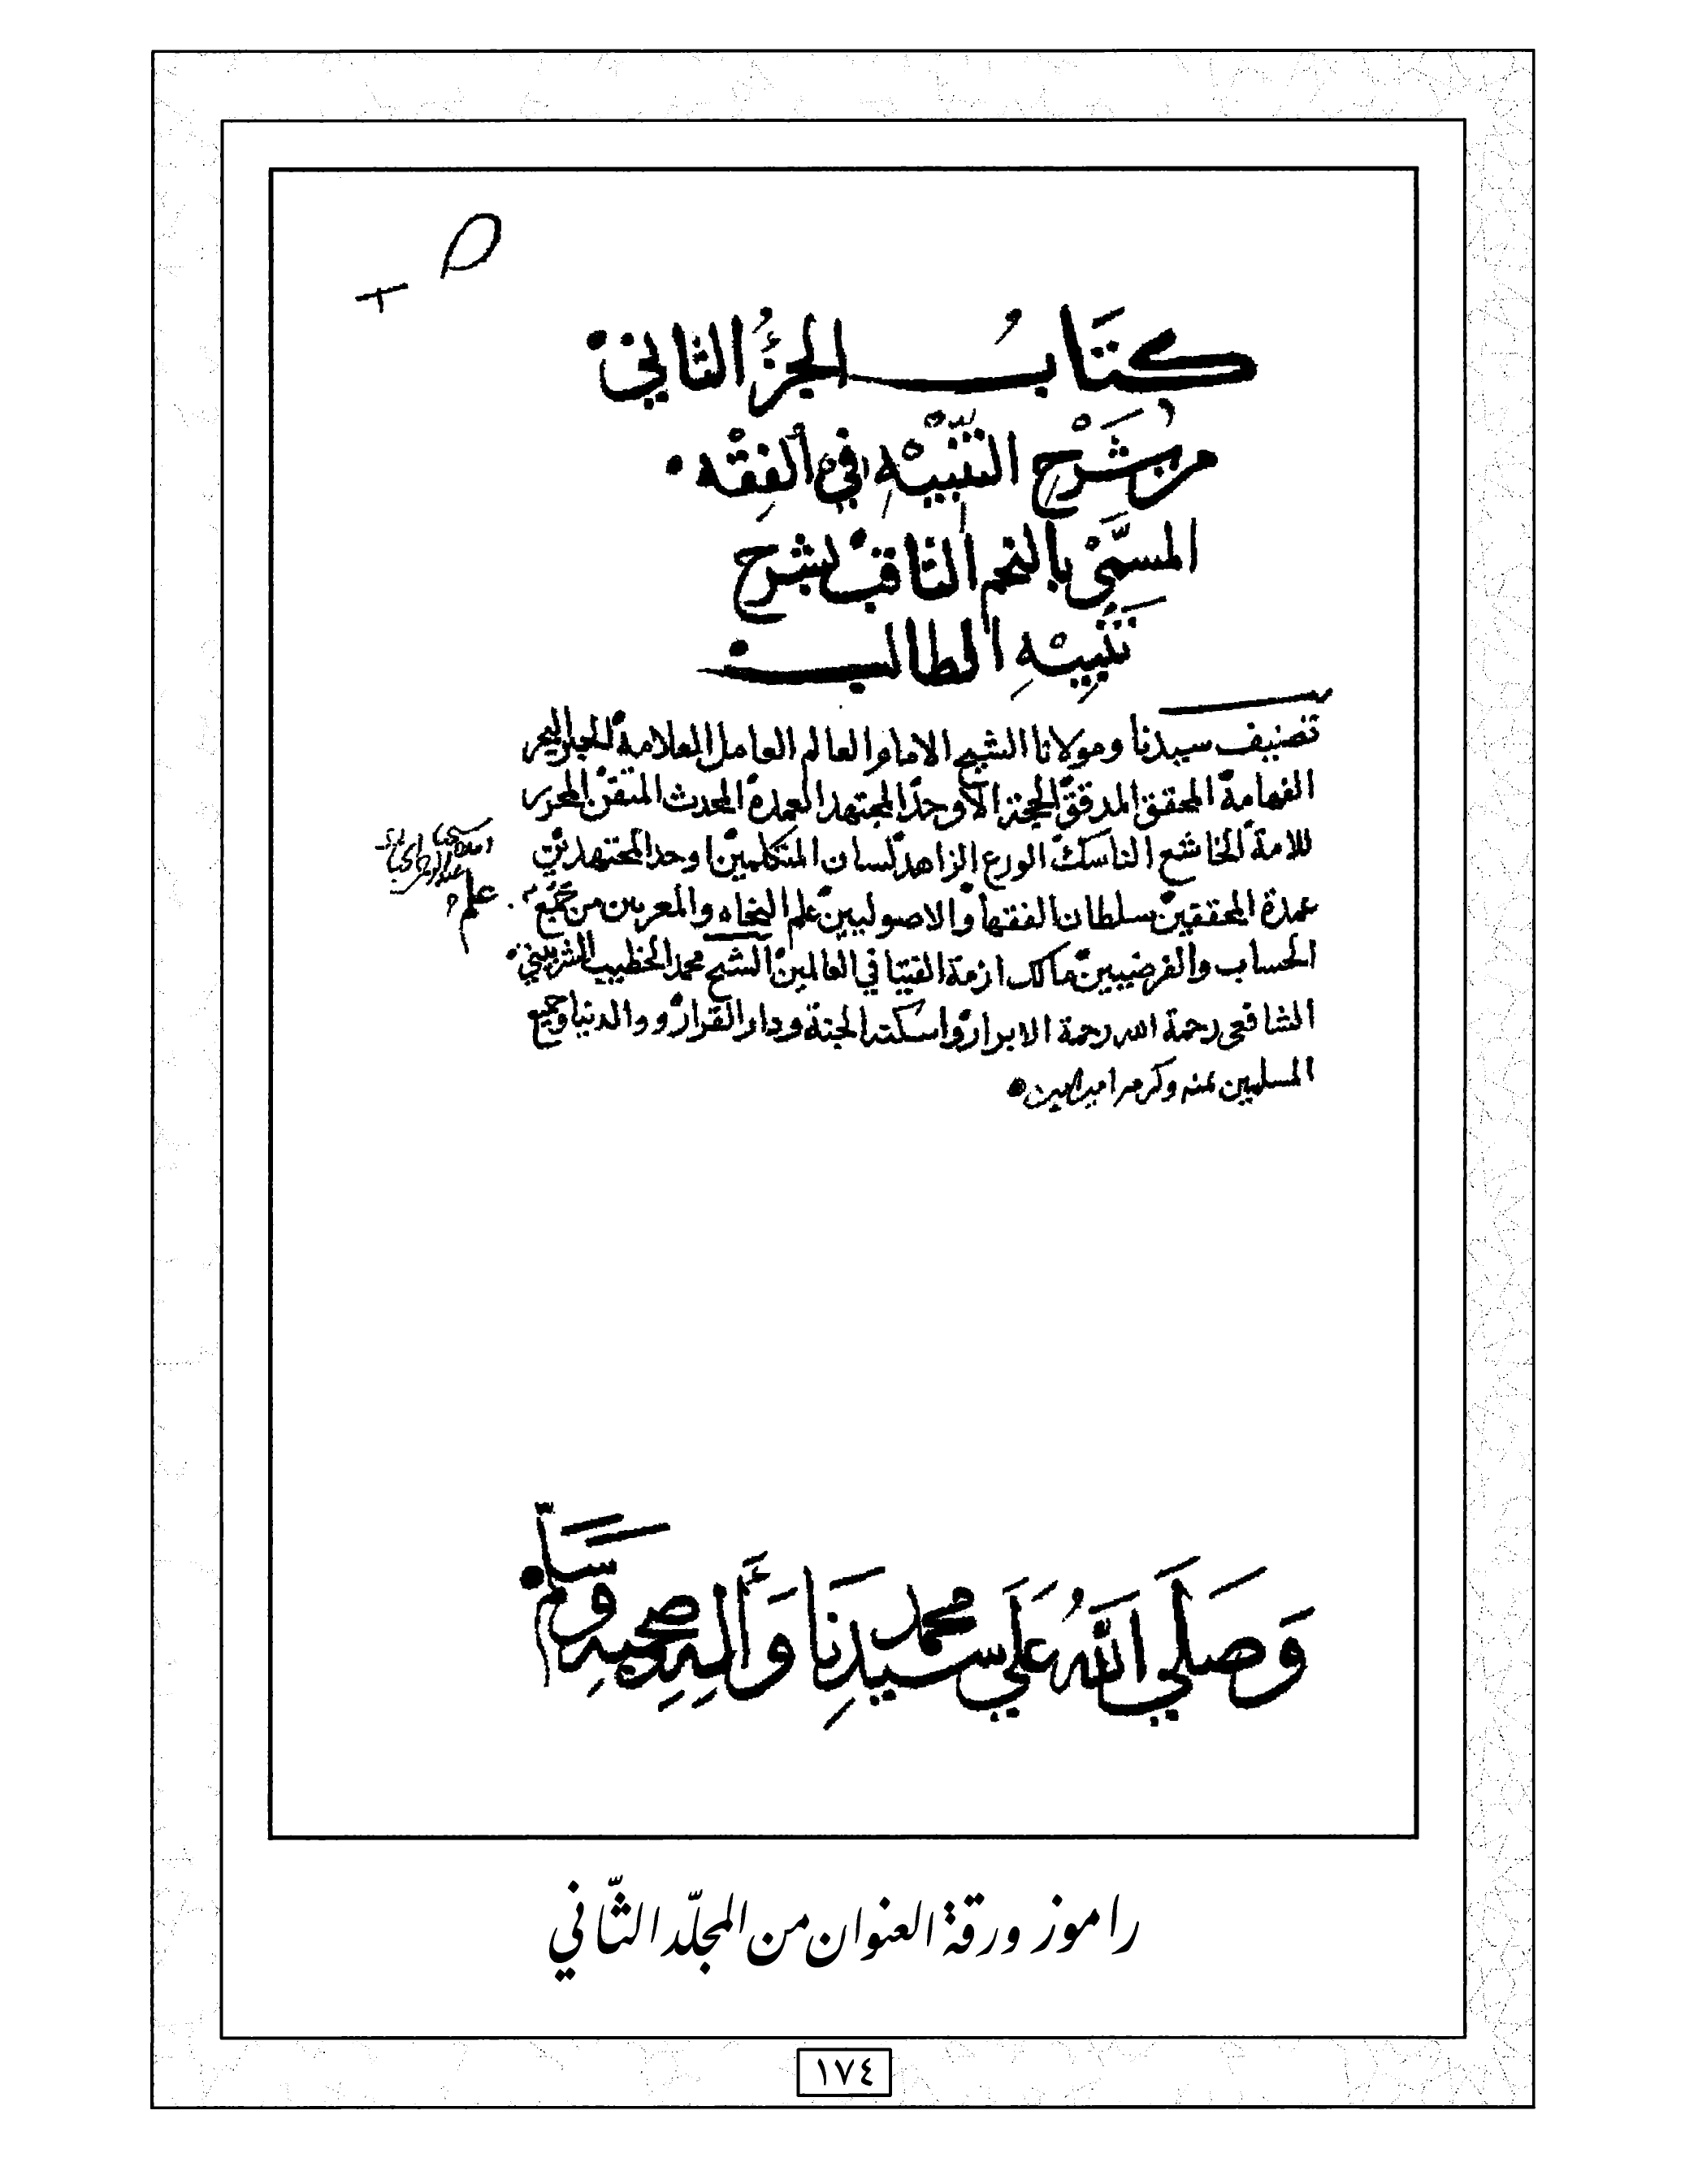 كتَابُ الجزُء الثاني
من شَرْح التَّنْبيْه في الفِقْه
المسَمّى بالنجم الثاقب لشرح
تَنْبيْهِ الطالب
تصنيف سيدنا ومولانا الشيخ الامام العالم العامل العلامة الحبر البحر
الفهامة المحقق المدقق الحجة الأوحد المجتهد العمدة المحدث المتقن المحرر
للامة الخاشع الناسك الورع الزاهد لسان المتكلمين اوحد المجتهدين
عمدة المحققين سلطان الفقها والاصوليين علم النحاه والمعربين من جميع
الحساب والفرضيين مالك ازمة الفتيا في العالمين الشيخ محمد الخطيب الشربيني
الشافعي رحمة الله رحمة الابرار واسكنه الجنة ودار القرار ووالدينا وجميع
المسلمين بمنه وكرمه امين امين
علم
وَصَلَّي اللَّهُ عَلَي سَيدِنَا محمد وَألهِ وصحبهِ وَسَلَّم
راموز ورقة العنوان من المجلّد الثّاني
١٧٤